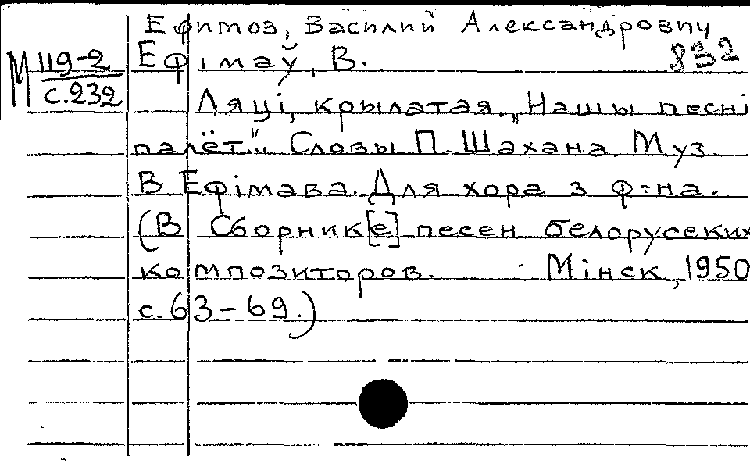 Ефимов, Василий Александрович
Ефімаў, В. 832
М 119-2
с.232
Ляці, крылатая. „Нашы песні
палёт". Словы П. Шахана. Муз.
В Ефімава. Для хора з ф-на.
(В Сборник[е] песен белорусских
композиторов. Мінск, 1950
с. 63-69.)